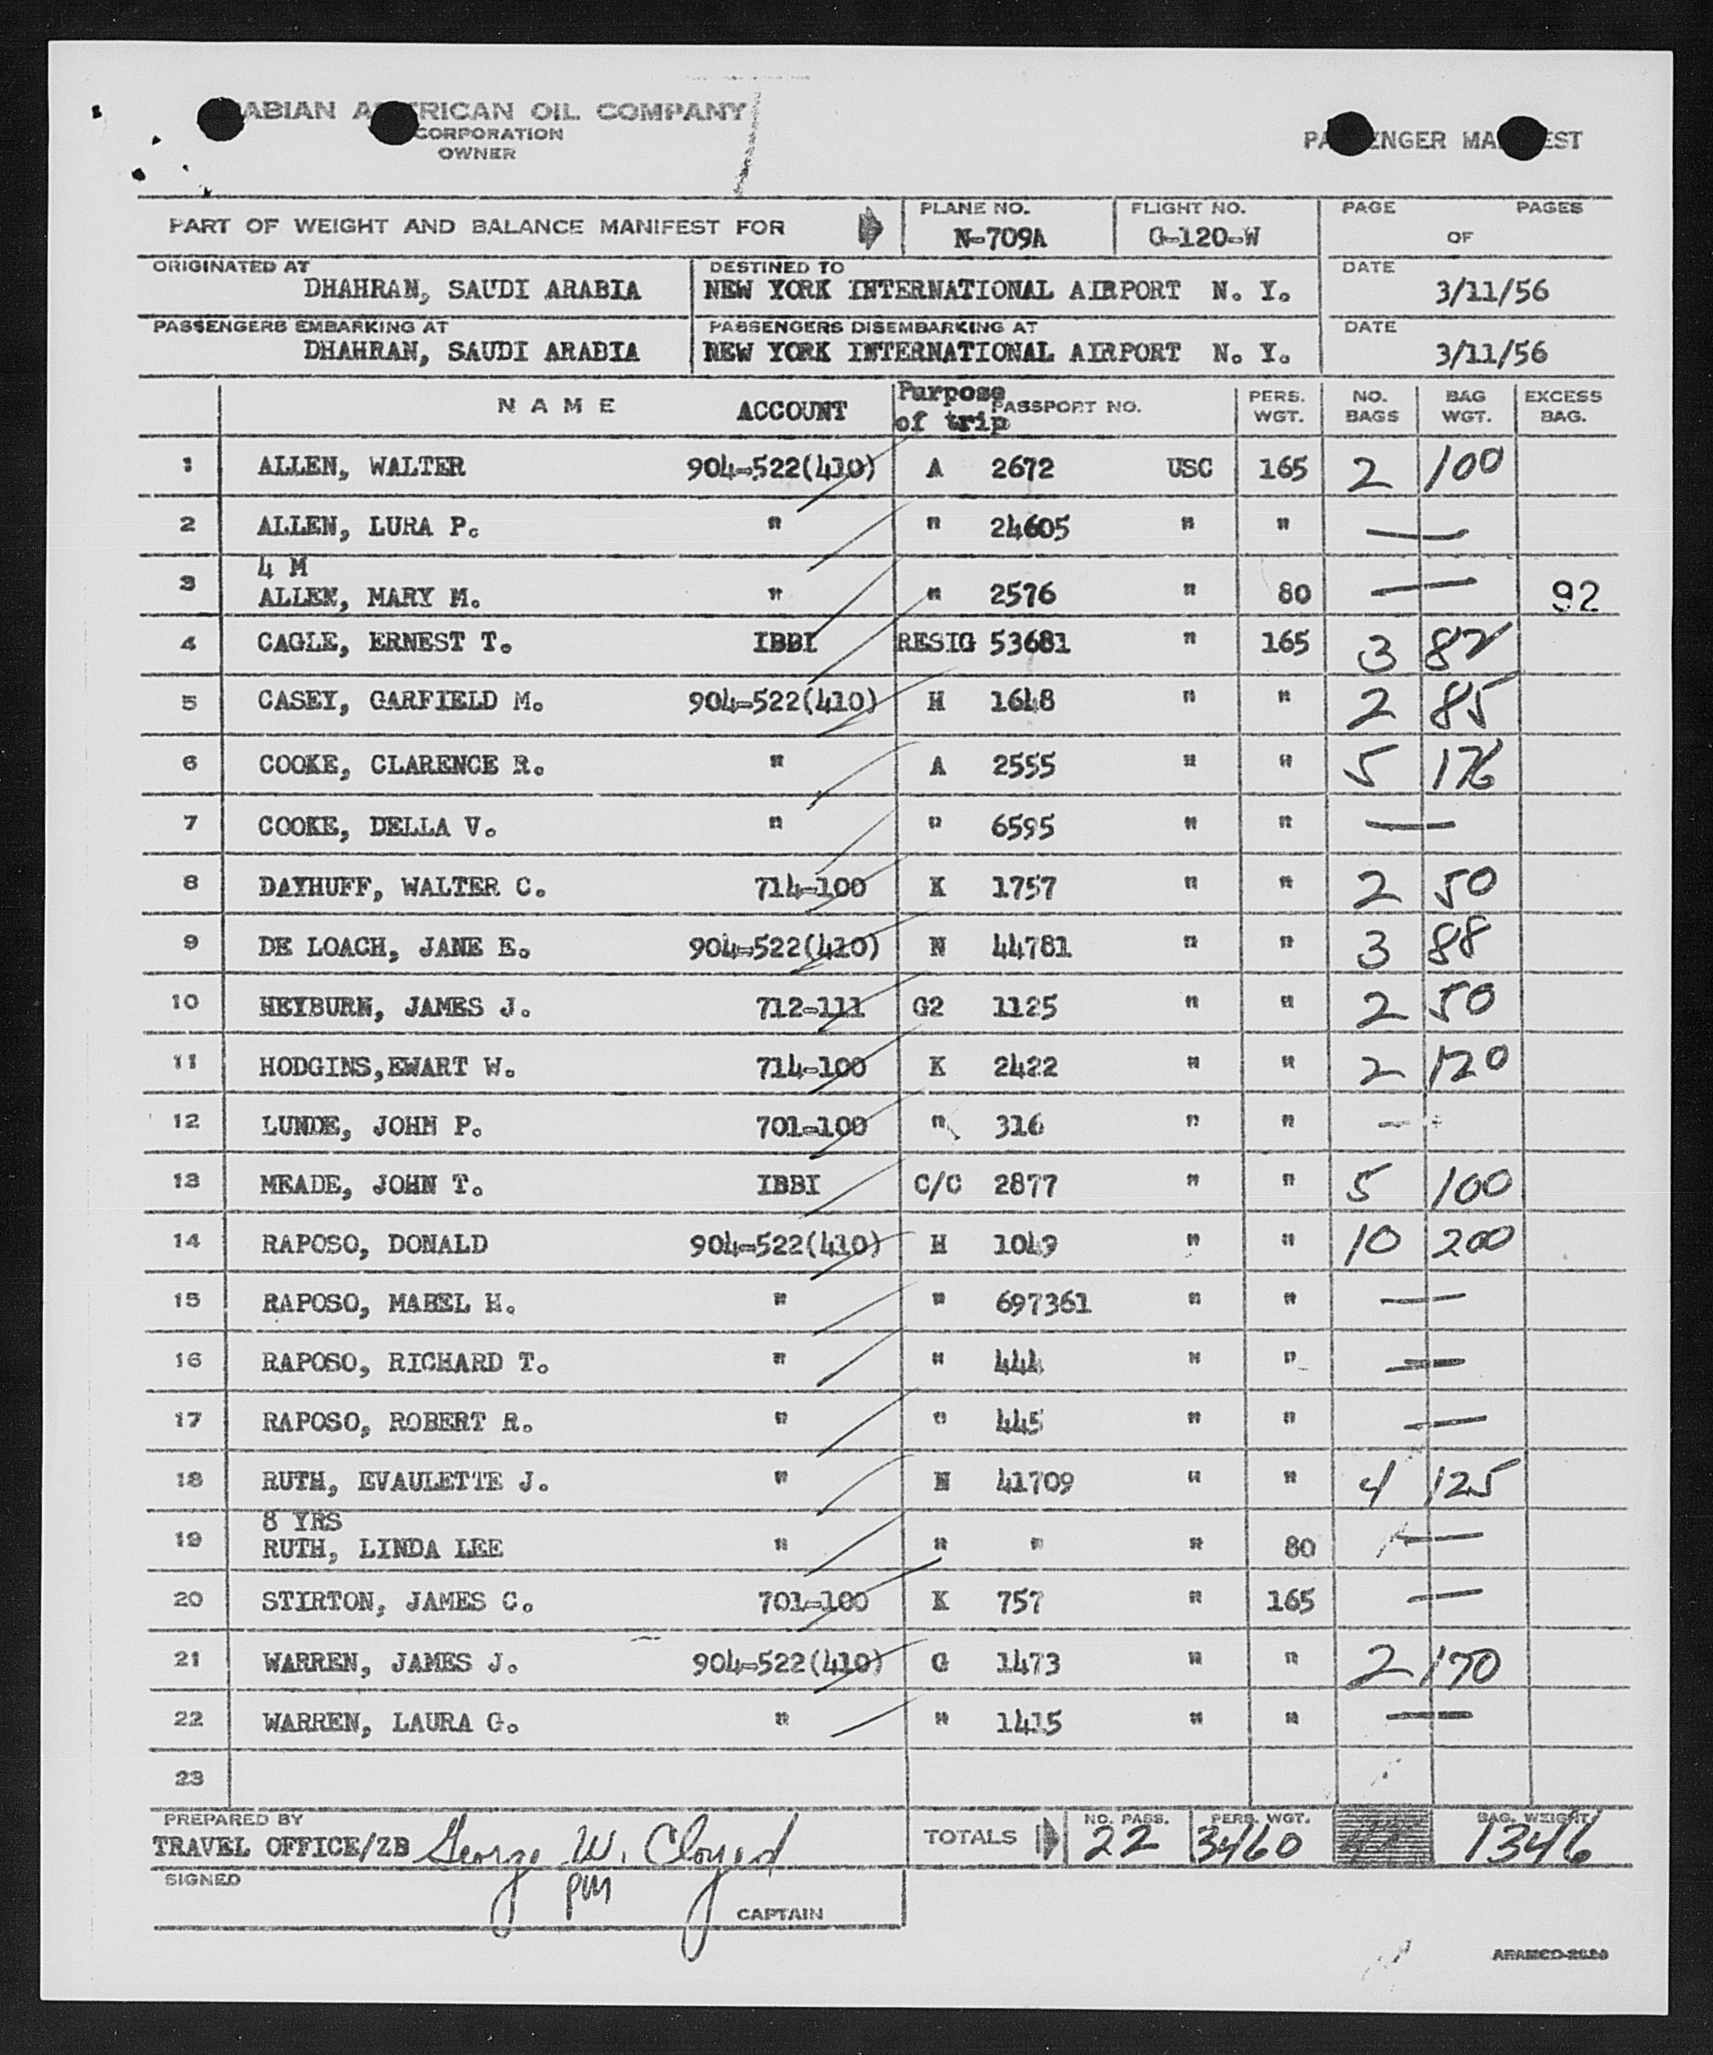 ABIAN A RICAN OIL COMPANY
CORPORATION
OWNER
PA ENGER MA EST
PART OF WEIGHT AND BALANCE MANIFEST FOR
PLANE NO. N-709A
FLIGHT NO. G-120-W
PAGE OF PAGES
ORIGINATED AT DHAHRAN, SAUDI ARABIA
DESTINED TO NEW YORK INTERNATIONAL AIRPORT N. Y.
DATE 3/11/56
PASSENGERS EMBARKING AT DHAHRAN, SAUDI ARABIA
PASSENGERS DISEMBARKING AT NEW YORK INTERNATIONAL AIRPORT N. Y.
DATE 3/11/56
NAME ACCOUNT Purpose of trip PASSPORT NO. PERS. WGT. NO. BAGS BAG WGT. EXCESS BAG.
1 ALLEN, WALTER 904-522(410) A 2672 USC 165 2 100
2 ALLEN, LURA P. " " 24605 " " —
4 M
3 ALLEN, MARY M. " " 2576 " 80 — 92
4 CAGLE, ERNEST T. IBBI RESIG 53681 " 165 3 82
5 CASEY, GARFIELD M. 904-522(410) H 1648 " " 2 85
6 COOKE, CLARENCE R. " A 2555 " " 5 176
7 COOKE, DELLA V. " " 6595 " " —
8 DAYHUFF, WALTER C. 714-100 K 1757 " " 2 50
9 DE LOACH, JANE E. 904-522(410) N 44781 " " 3 88
10 HEYBURN, JAMES J. 712-111 G2 1125 " " 2 50
11 HODGINS,EWART W. 714-100 K 2422 " " 2 120
12 LUNDE, JOHN P. 701-100 " 316 " " —
13 MEADE, JOHN T. IBBI C/C 2877 " " 5 100
14 RAPOSO, DONALD 904-522(410) H 1049 " " 10 200
15 RAPOSO, MABEL H. " " 697361 " " —
16 RAPOSO, RICHARD T. " " 444 " " —
17 RAPOSO, ROBERT R. " " 445 " " —
18 RUTH, EVAULETTE J. " N 41709 " " 4 125
8 YRS
19 RUTH, LINDA LEE " " " " 80 —
20 STIRTON, JAMES C. 701-100 K 757 " 165 —
21 WARREN, JAMES J. 904-522(410) G 1473 " " 2 170
22 WARREN, LAURA G. " " 1415 " " —
23
PREPARED BY
TRAVEL OFFICE/ZB George W. Cloyed
TOTALS NO. PASS. 22 PERS. WGT. 3460 BAG. WEIGHT 1346
SIGNED
pm
CAPTAIN